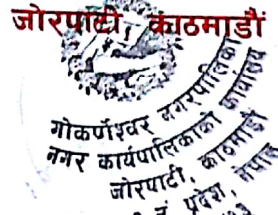 जोरपाटी, काठमाडौं
गोकर्णेश्वर नगरपालिका
नगर कार्यपालिकाको कार्यालय
जोरपाटी, काठमाडौं
नं. प्रदेश, नेपाल